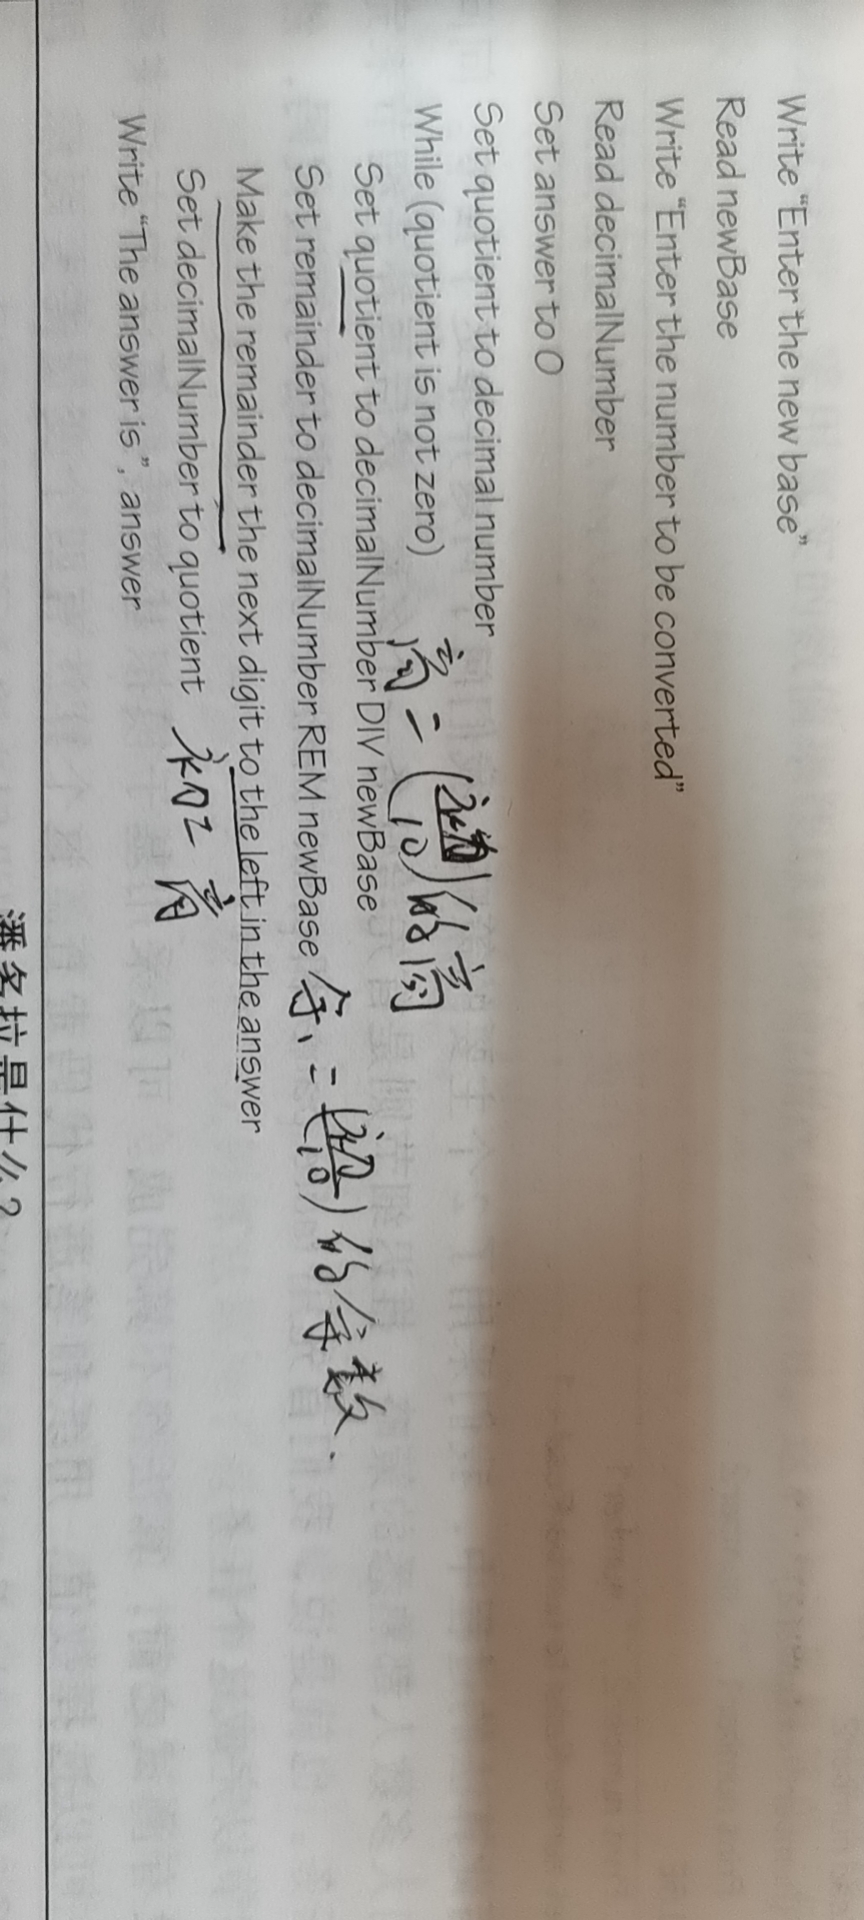 Write “Enter the new base”
Read newBase
Write “Enter the number to be converted”
Read decimalNumber
Set answer to 0
Set quotient to decimal number
While (quotient is not zero)
商 = ( 10 ) 的商
Set quotient to decimalNumber DIV newBase
Set remainder to decimalNumber REM newBase 余 = ( 10 ) 的余数.
Make the remainder the next digit to the left in the answer
Set decimalNumber to quotient = 商
Write “The answer is ”, answer
潘多拉是什么？